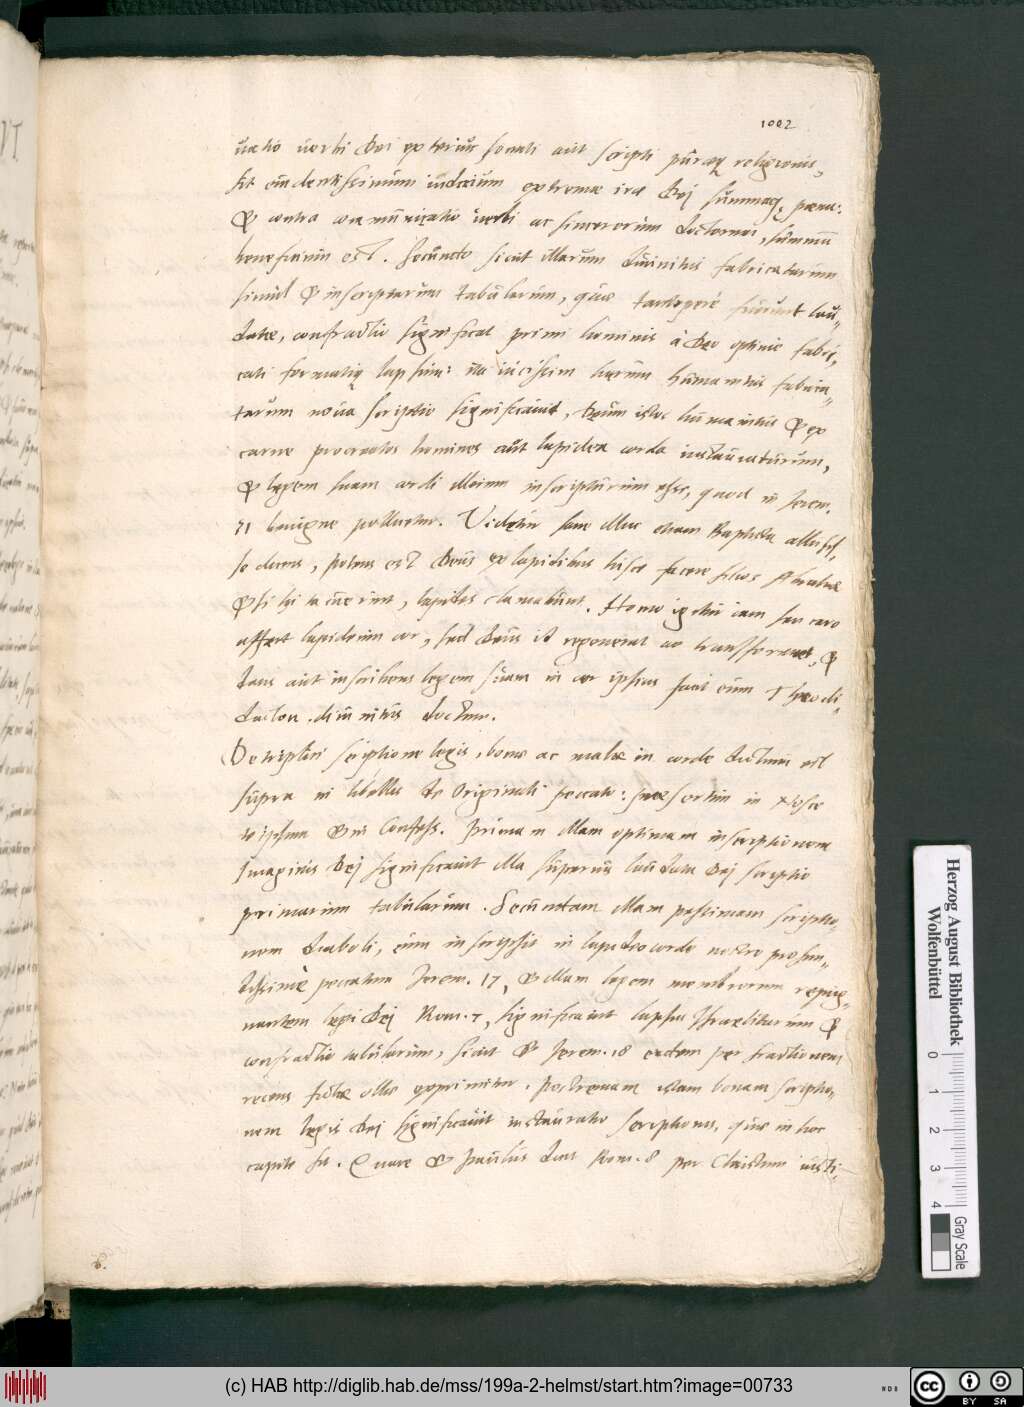 1002
uatio uerbi Dei exterius sonati aut scripti puraeq religionis,
sit euidentissimum iudicium extremae irae Dej summaeq paenae:
& contra communicatio uerbi ac sincerorum doctorum, summum
beneficium est. Secundo sicut illarum diuinitus fabricatarum
simul & inscriptarum tabularum, quae tantopere fuerunt lau-
datae, confractio significat primi hominis à Deo optime fabri-
cati formatiq lapsum: ita uicissim harum humanitus fabrica-
tarum noua scriptio significauit, Deum istos humanitus & ex
carne procreatos homines aut lapidea corda instauraturum,
& legem suam cordi illorum inscripturum esse, quod in Jerem.
31 benigne pollicetur. Videtur sane illuc etiam Baptista allusis-
se dicens, potens est Deus ex lapidibus hisce facere filios Abrahae
& si hi tacuerint, lapides clamabunt. Homo igitur iam seu caro
affert lapideum cor, sed Deus id regenerat ac transformat, &
dans aut inscribens legem suam in cor ipsius facit eum Theodi-
dacton diuinitus doctum.
De triplici scriptione legis, bonae ac malae in corde dictum est
supra in libello de Originali peccato: praesertim in Nosce
te ipsum & in Confess. Primam illam optimam inscriptionem
Imaginis Dej significauit illa superius laudata Dej scriptio
primarum tabularum. Secundam illam pessimam scriptio-
nem diaboli, cum inscripsit in lapideo corde nostro profun-
dissime peccatum Jerem. 17, & illam legem membrorum repug-
nantem legi Dej Rom. 7, significauit lapsus Israelitarum &
confractio tabularum, sicut & Jerem. 18 eadem per fractionem
recens fictae ollae exprimitur. Postremam istam bonam scriptio-
nem legis Dei significauit instauratio scriptionis, quae in hoc
capite fit. Quare & Paulus dicit Rom. 8 per Christum iusti-
Herzog August Bibliothek
Wolfenbüttel
0 1 2 3 4
Gray Scale
(c) HAB http://diglib.hab.de/mss/199a-2-helmst/start.htm?image=00733
cc BY SA